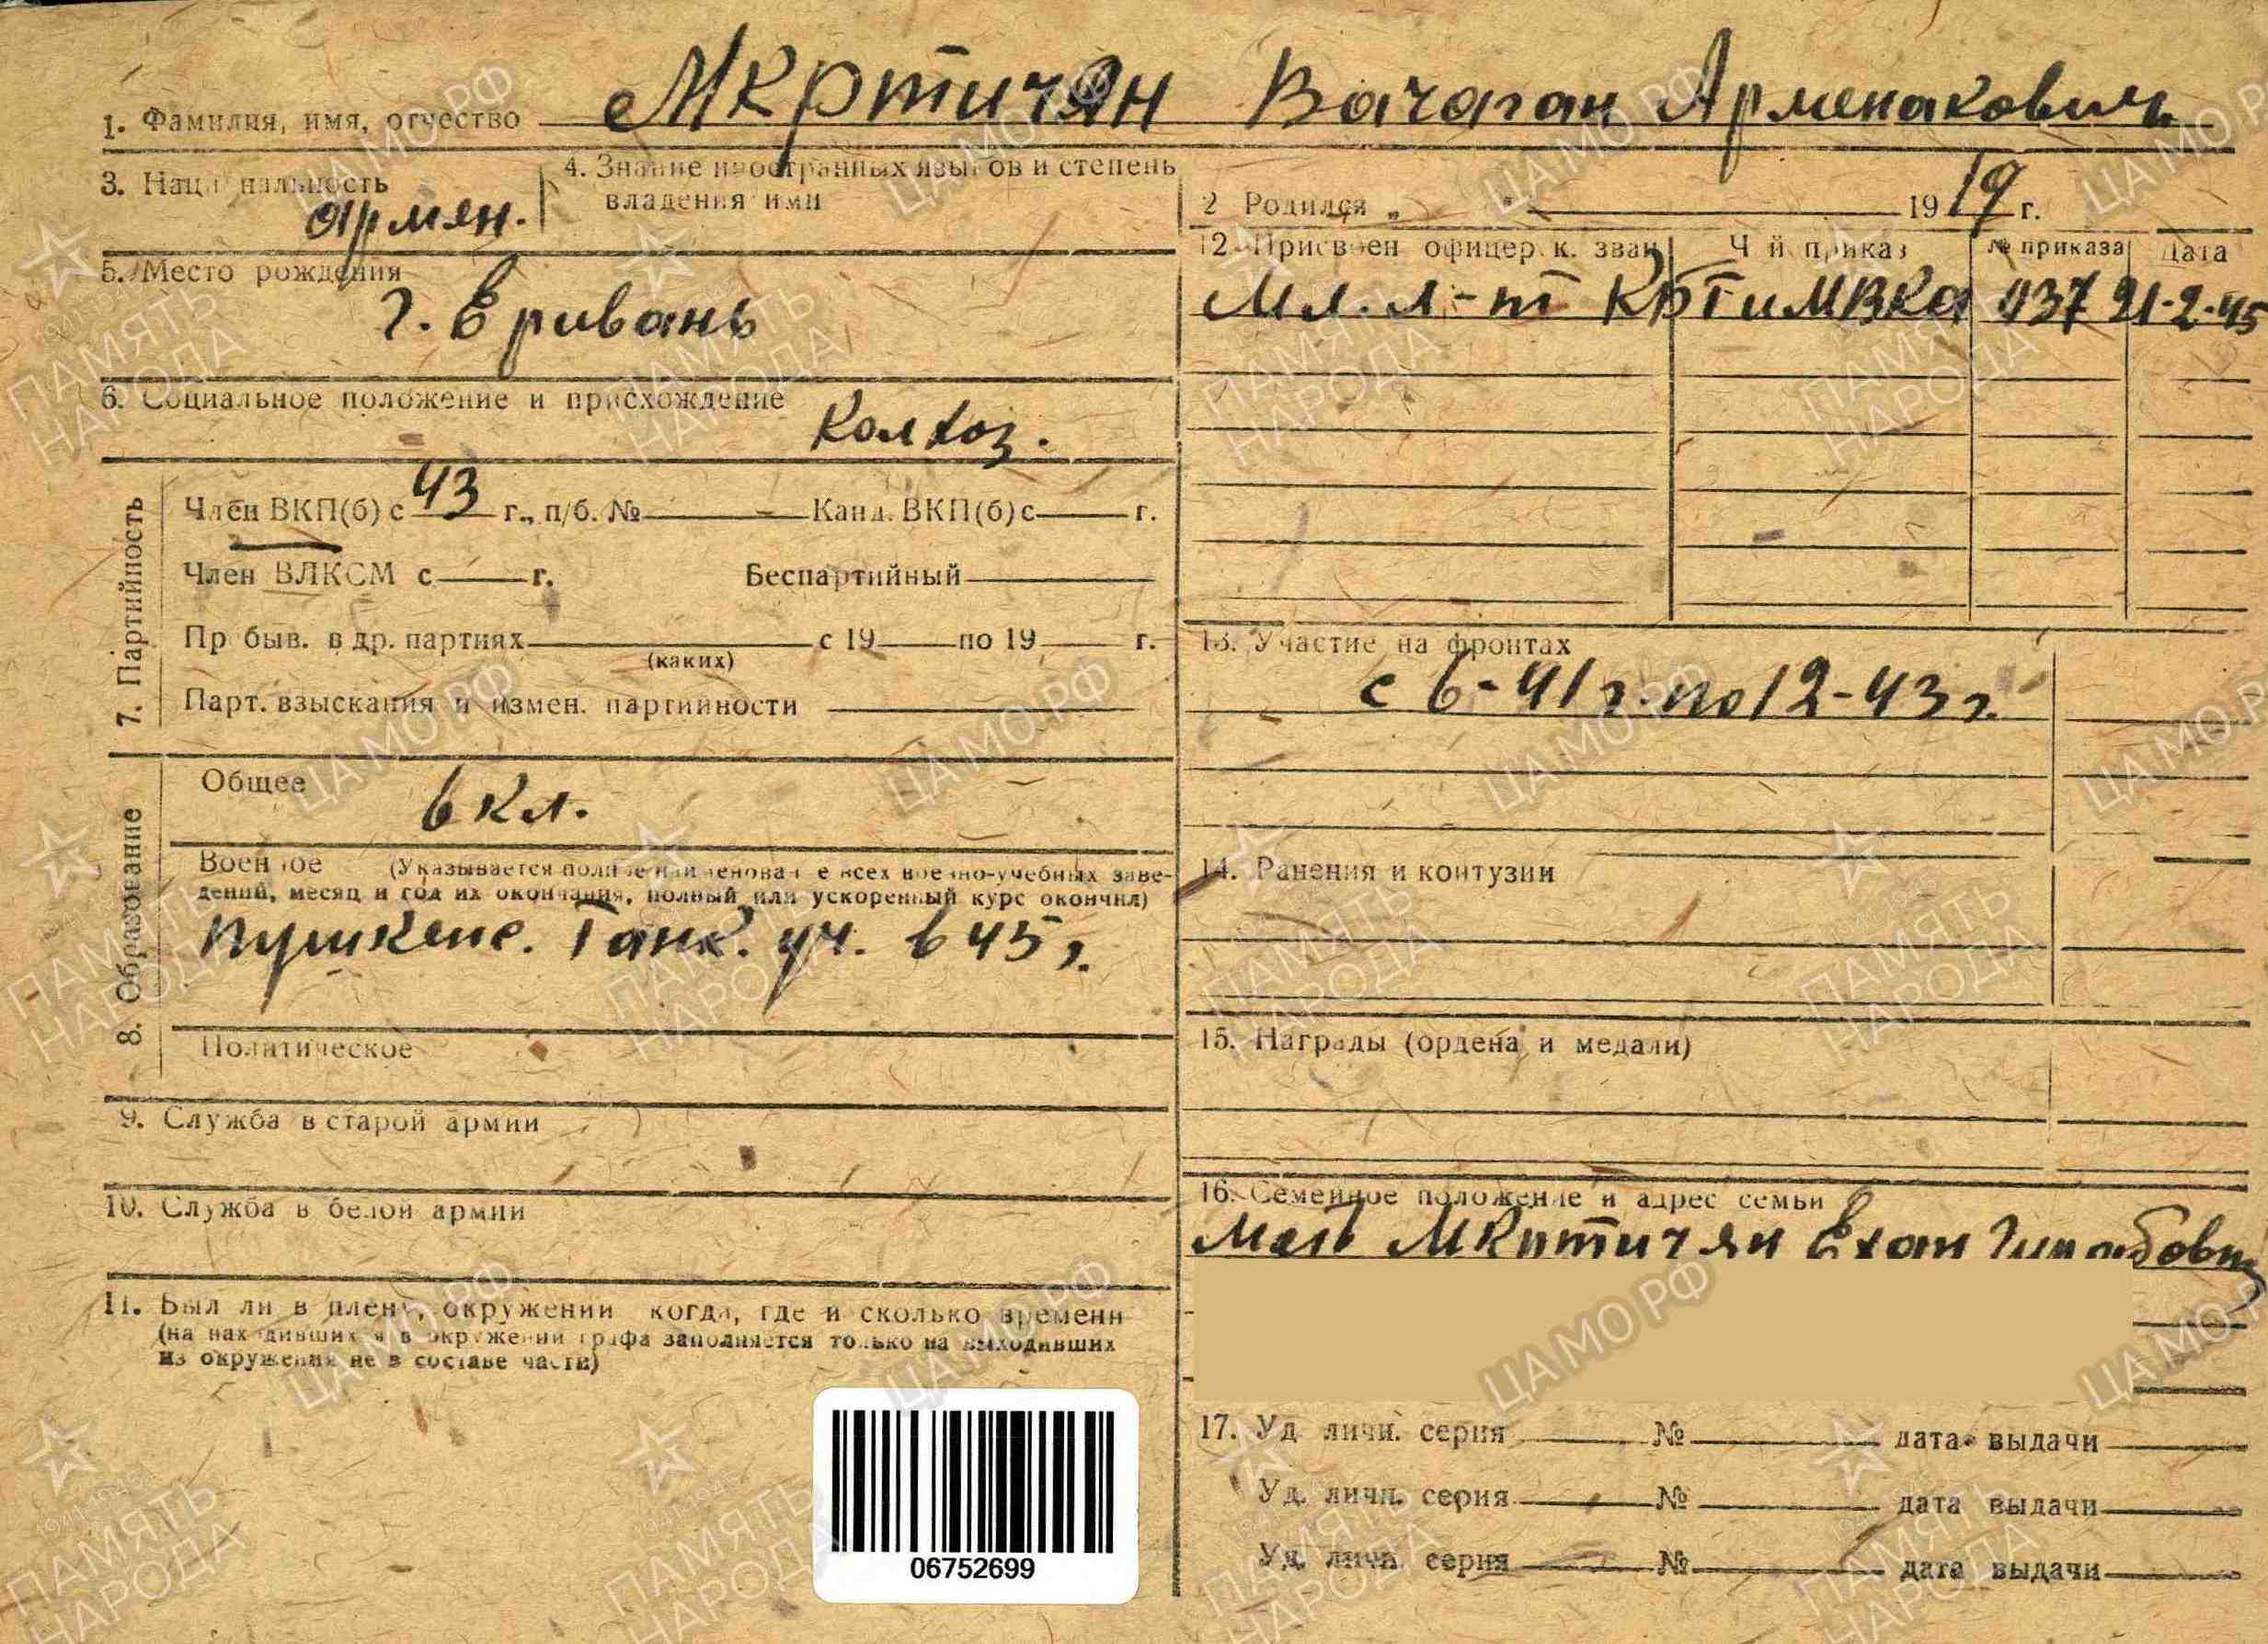 1. Фамилия, имя, отчество Мкртичян Вачаган Арменакович
3. Национальность армян.
4. Знание иностранных языков и степень
владения ими
2 Родился " " 1919 г.
5. Место рождения
г. Еривань
12 Присвоен офицер. к. зван Чей приказ № приказа Дата
Мл. л-т КБТиМВКА 21-2-45
6. Социальное положение и присхождение Колхоз.
7. Партийность
Член ВКП(б) с 43 г., п/б. № Канд. ВКП(б) с г.
Член ВЛКСМ с г. Беспартийный
Пр быв. в др. партиях с 19 по 19 г.
(каких)
Парт. взыскания и измен. партийности
13. Участие на фронтах
с 6-41 г. по 12-43 г.
8. Образование
Общее 6 кл.
Военное (Указывается полное наименование всех военно-учебных заве-
дений, месяц и год их окончания, полный или ускоренный курс окончил)
Пушкинс. Танк. уч. в 45 г.
Политическое
14. Ранения и контузии
15. Награды (ордена и медали)
9. Служба в старой армии
10. Служба в белой армии
16. Семейное положение и адрес семьи
Мать Мкртичян Ехан
11. Был ли в плену, окружении когда, где и сколько времени
(на находившихся в окружении графа заполняется только на выходивших
из окружения не в составе части)
17. Уд личн. серия № дата выдачи
Уд. личн. серия № дата выдачи
Уд. личн. серия № дата выдачи
06752699
ПАМЯТЬ НАРОДА
ЦАМО.РФ